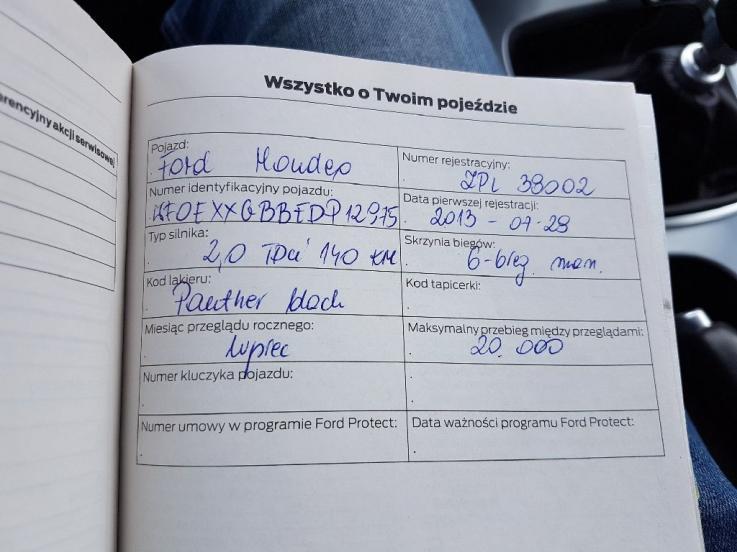 erencyjny akcji serwisowej
Wszystko o Twoim pojeździe
Pojazd:
Ford Mondeo
Numer rejestracyjny:
ZPL 38002
Numer identyfikacyjny pojazdu:
WF0EXXGBBEDP12975
Data pierwszej rejestracji:
2013 - 07-29
Typ silnika:
2,0 TDci 140 KM
Skrzynia biegów:
6-bieg. man.
Kod lakieru:
Panther black
Kod tapicerki:
Miesiąc przeglądu rocznego:
lipiec
Maksymalny przebieg między przeglądami:
20.000
Numer kluczyka pojazdu:
Numer umowy w programie Ford Protect:
Data ważności programu Ford Protect: